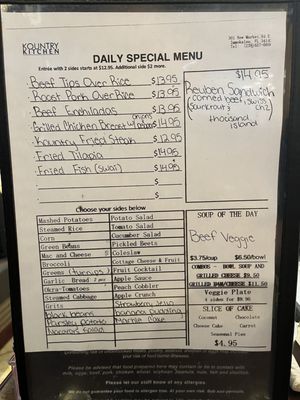 KOUNTRY KITCHEN
DAILY SPECIAL MENU
Entrée with 2 sides starts at $12.95. Additional side $2 more.
Beef Tips Over Rice $13.95
Roast Pork Over Rice $13.95
Beef Enchiladas $13.95
Grilled Chicken Breast w/onions $14.95
Kountry Fried Steak $12.95
Fried Tilapia $14.95
Fried Fish (Swai) $14.95
$
$
$14.95
Reuben Sandwich
corned beef, swiss
thousand
island
Choose your sides below
Mashed Potatoes Potato Salad
Steamed Rice Tomato Salad
Corn Cucumber Salad
Green Beans Pickled Beets
Mac and Cheese Coleslaw
Broccoli Cottage Cheese & Fruit
Greens (turnips) Fruit Cocktail
Garlic Bread Apple Sauce
Okra-Tomatoes Peach Cobbler
Steamed Cabbage Apple Crunch
Grits Strawberry Jello
black beans banana pudding
Parsley potato Marble Cake
SOUP OF THE DAY
Beef Veggie
$3.75/cup $6.50/bowl
COMBOS - BOWL SOUP AND
GRILLED CHEESE $9.50
GRILLED HAM/CHEESE $11.50
Veggie Plate
4 sides for $9.96
SLICE OF CAKE
Coconut Chocolate
Cheese Cake Carrot
Seasonal Pies
$4.95
Please be advised that food prepared here may contain or be in contact with
Please let our staff know of any allergies.